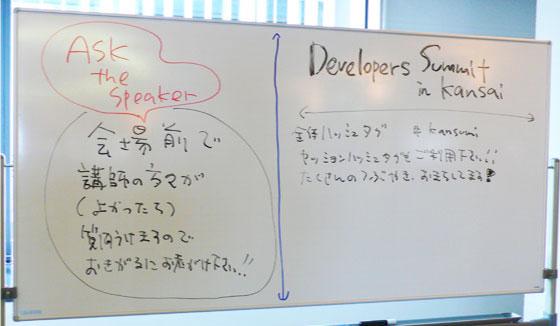 ASK
the
Speaker
会場前で
講師の方々が
(よかったら)
質問うけますので
おきがるにお声がけ下さい!!
Developers Summit
in kansai
全体ハッシュタグ # kansumi
セッションハッシュタグもご利用下さい!!
たくさんのつぶやき、おまちしてます!